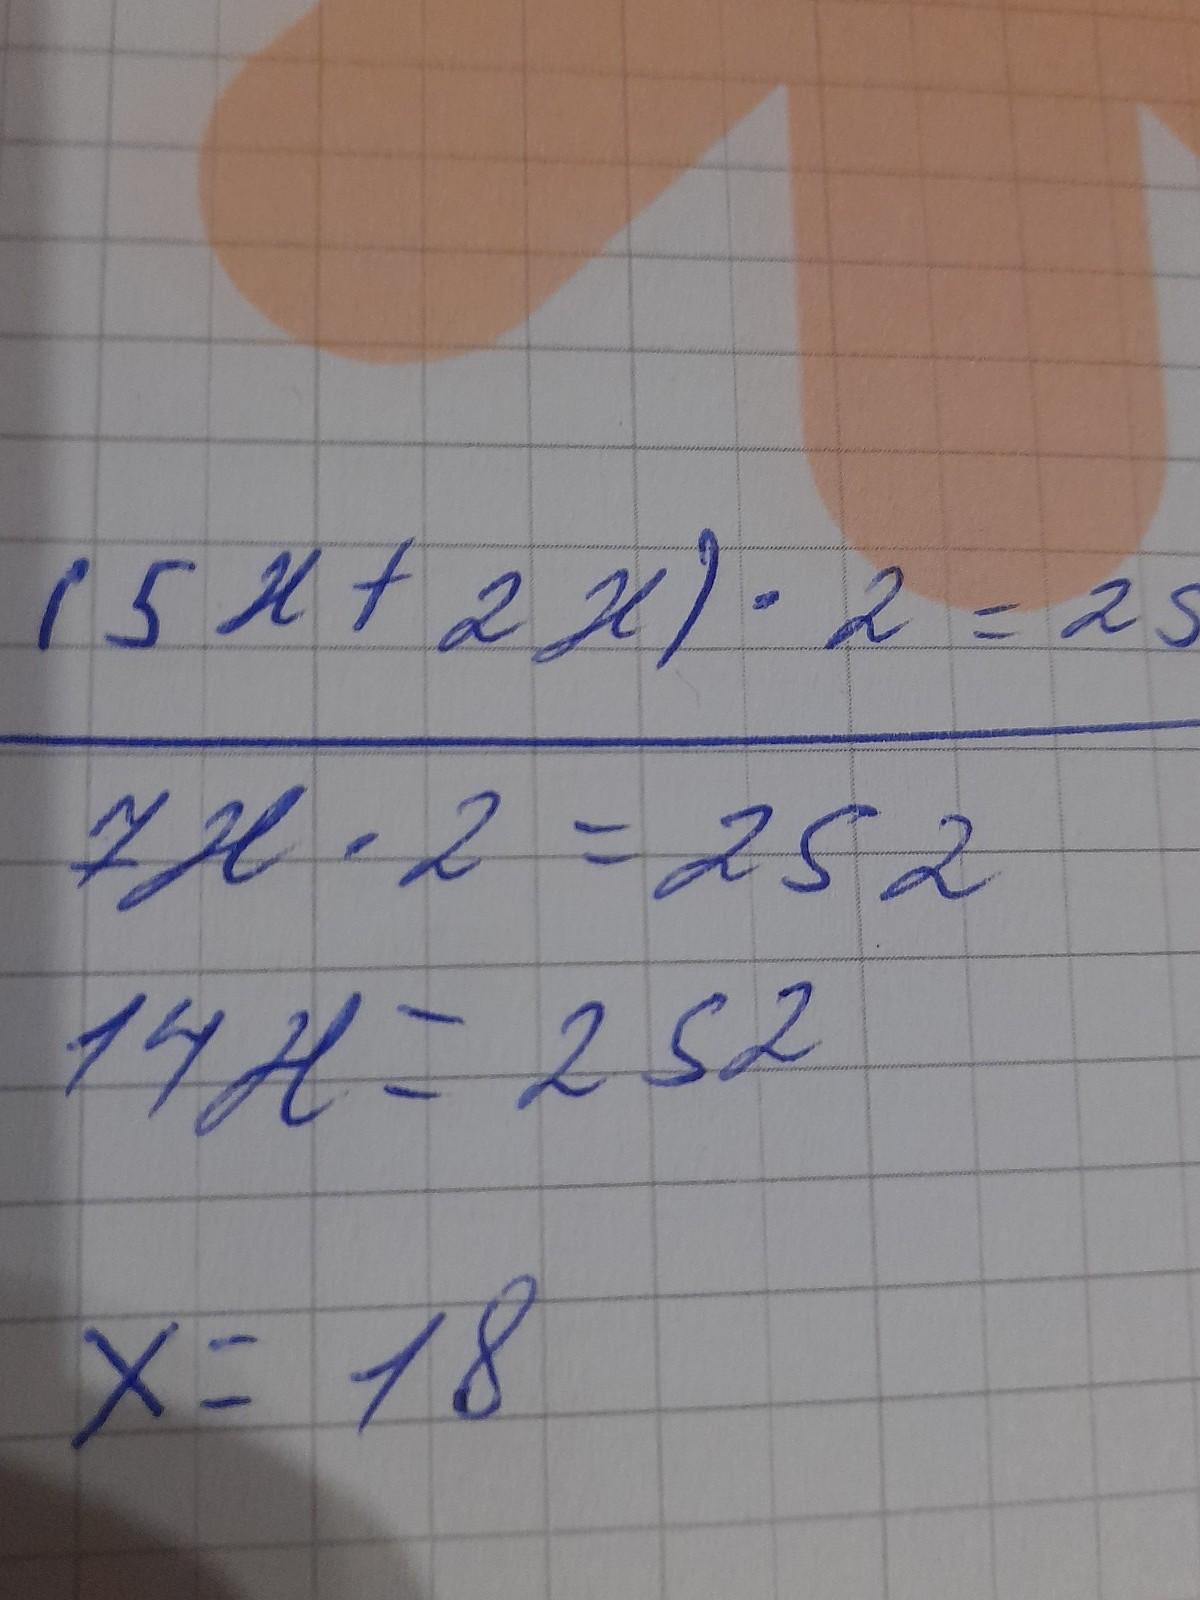 (5x + 2x) · 2 = 25
7x · 2 = 252
14x = 252
x = 18